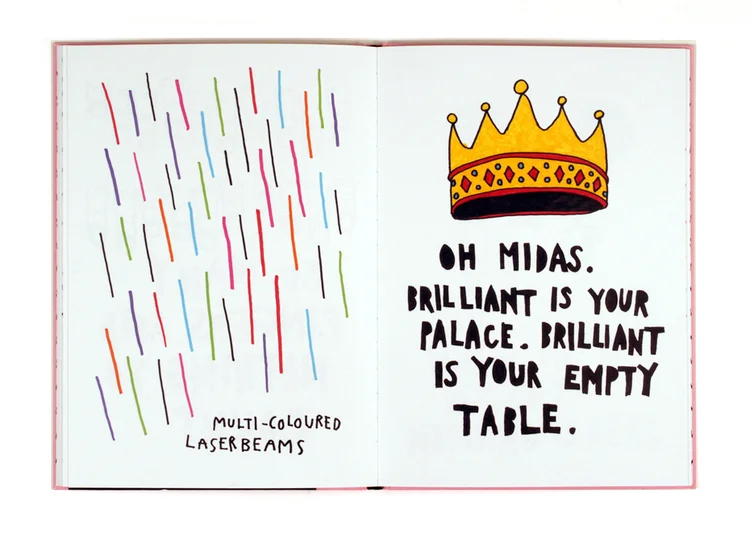 MULTI-COLOURED
LASERBEAMS
OH MIDAS.
BRILLIANT IS YOUR
PALACE. BRILLIANT
IS YOUR EMPTY
TABLE.